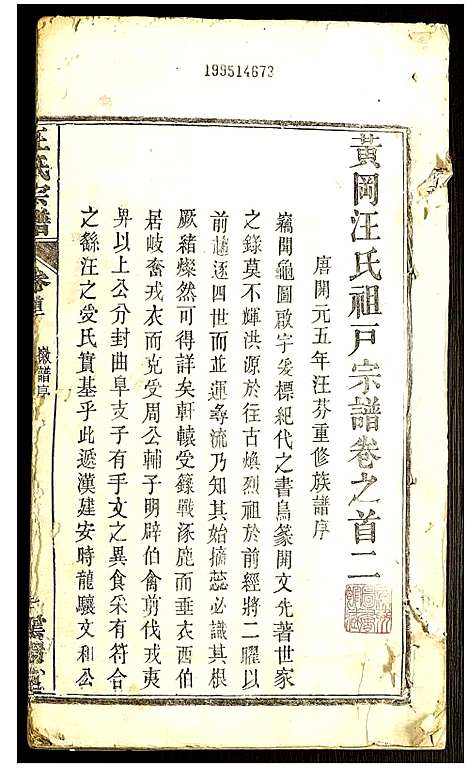 199514673
黃岡汪氏祖戸宗譜卷之首二
唐開元五年汪芬重修族譜序
竊聞龜圖啟宇爰標紀代之書鳥篆開文先著世家
之錄莫不輝洪源於往古煥烈祖於前經將二曜以
前趨逐四世而並運尋流乃知其始摘蕊必識其根
厥緒燦然可得詳矣軒轅受籙戰涿鹿而垂衣西伯
居岐奮戎衣而克受周公輔子明辟伯禽剪伐戎夷
界以上公分封曲阜支子有手文之異食采有符合
之繇汪之受氏實基乎此遞漢建安時龍驤文和公
汪氏宗譜
卷首
徽譜序
一